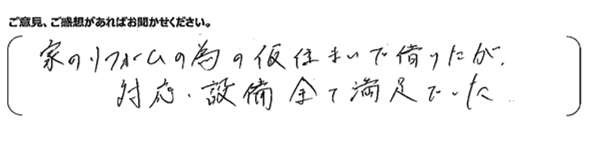 ご意見、ご感想があればお聞かせください。
家のリフォームの為の仮住まいで借りたが、
対応・設備全て満足でした